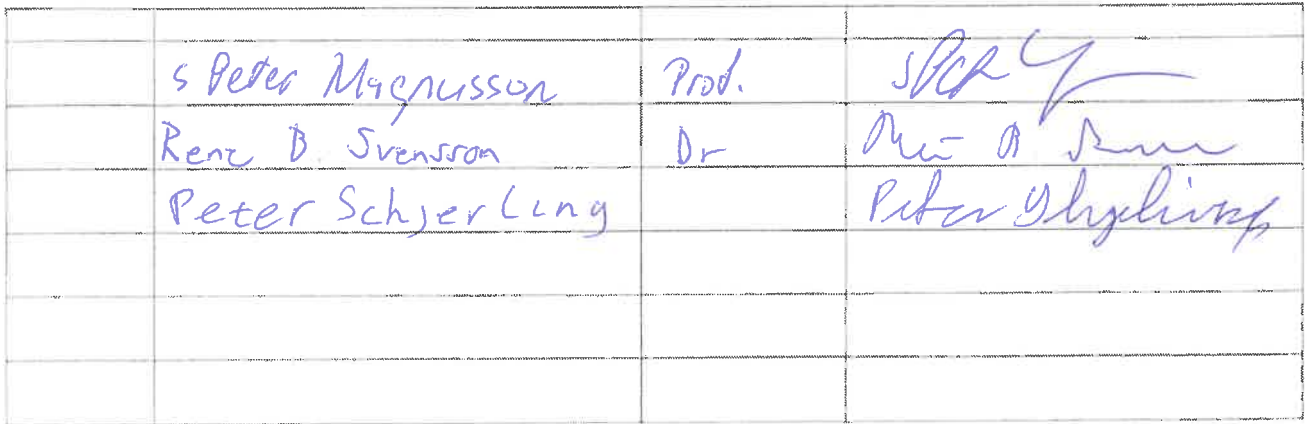 S Peter Magnusson Prof.
Rene B Svensson Dr
Peter Schjerling Peter Schjerling